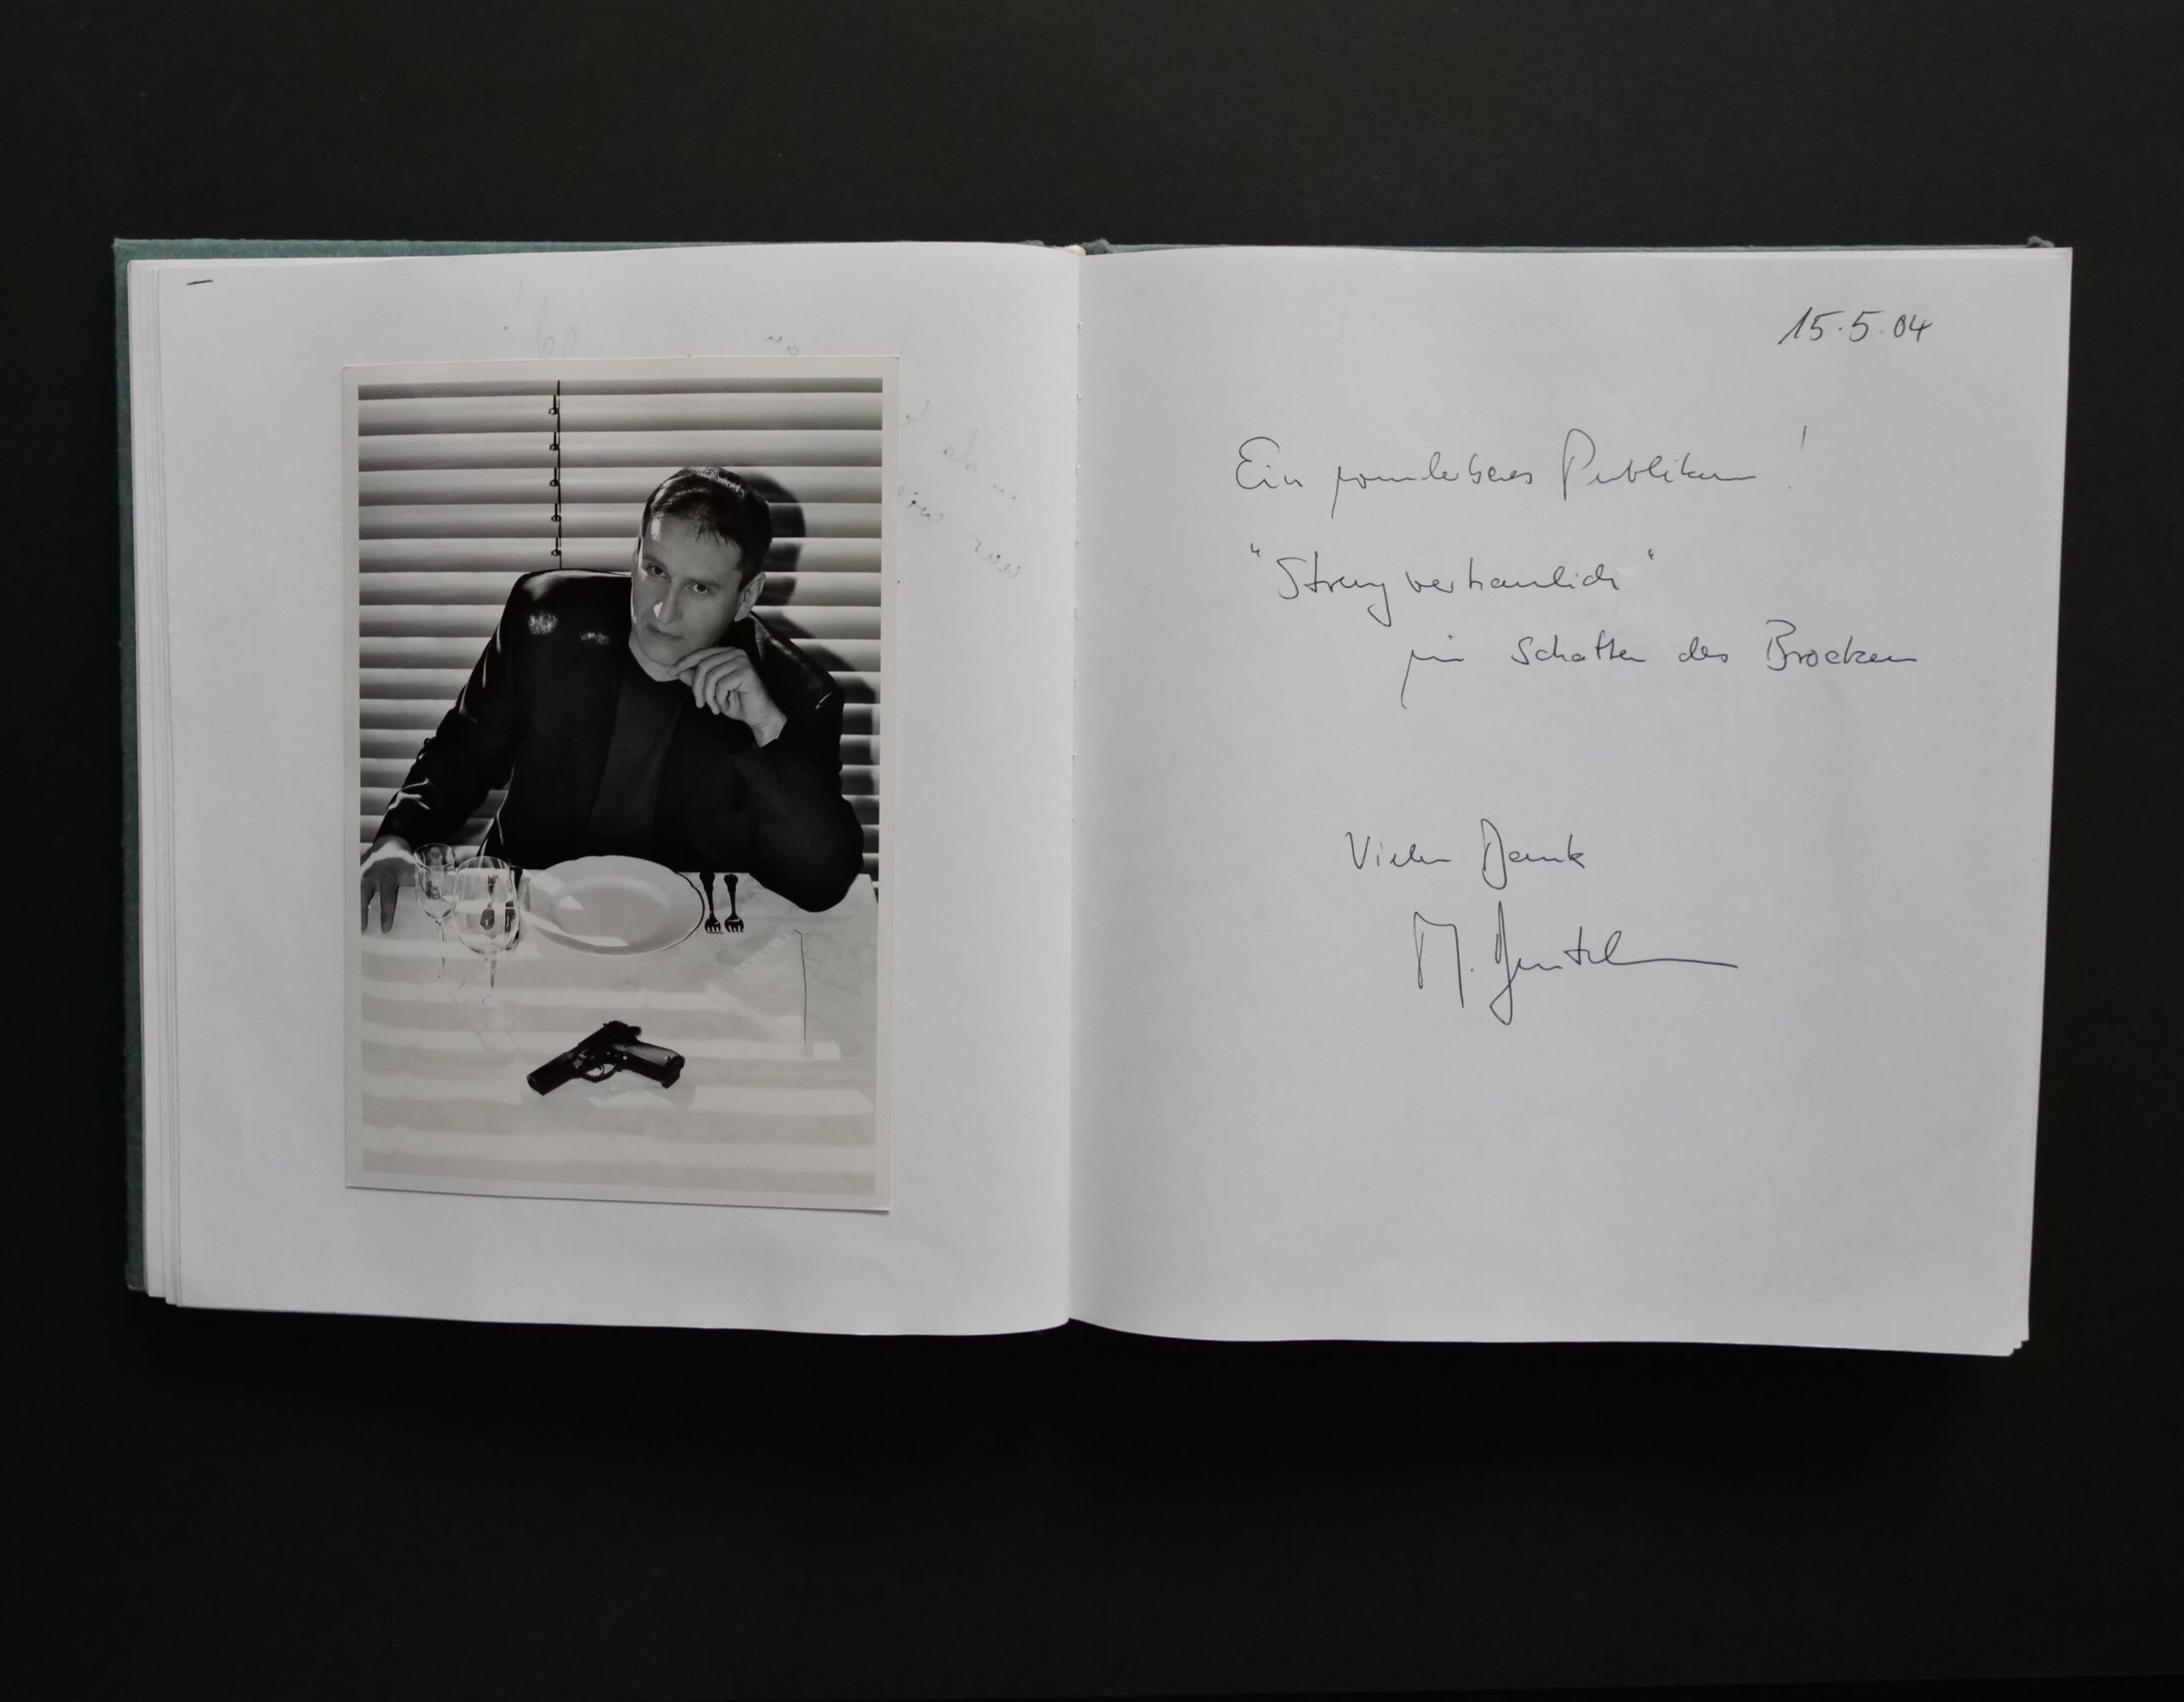 15.5.04
Ein wunderbares Publikum !
"Streng vertraulich"
im Schatten des Brocken
Vielen Dank
M.